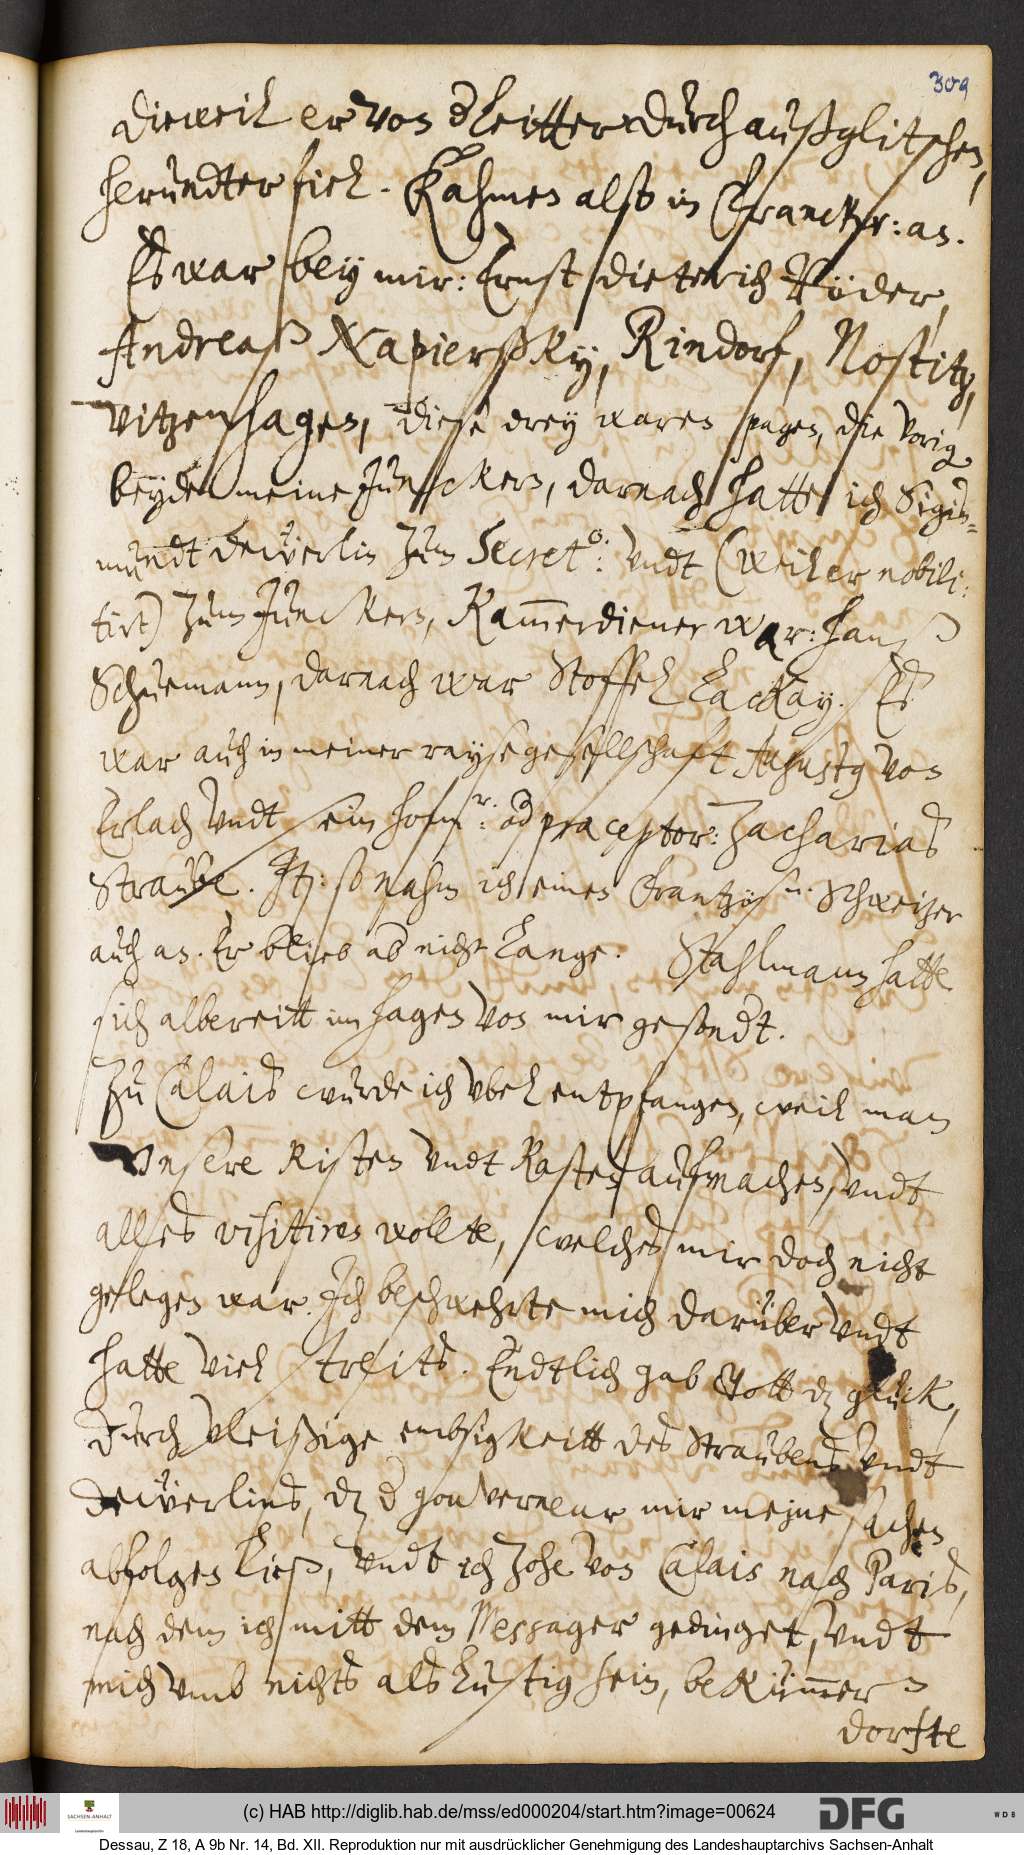 309
dieweil er von d leitter durch außglitschen,
herundter fiel. Kahmen also in Franckr: an.
Es war bey mir: Ernst Dieterich Röder,
Andreaß Napierßky, Rindorf, Nostitz,
Vitzenhagen, diese drey waren pagen, die vorig
beyden meine Junckern, darnach hatte ich Sigis=
mundt Deüerlin zum Secret°: vndt (weil er nobili:
tirt) zum Junckern, Kam̄erdiener war: Hanß
Schuemann, darnach war Stoffel Lackay. Es
war auch in meiner raysegesellschaft Augustg von
Erlach vndt sein hofmr: od præceptor: Zacharias
Straube. It: so nahm ich einen Frantzösn. Schweitzer
auch an. Er blieb ab nicht lange. Stahlmann hatte
sich albereitt im Hagen von mir gesondt.
Zu Calais wurde ich vbel entpfangen, weil man
vnsere Kisten vndt Kasten aufmachen, vndt
alles visitiren wollte, welches mir doch nicht
gelegen war. Jch beschwehrte mich darüber vndt
hatte viel streits. Endtlich gab Gott dz glück,
durch vleißige embsigkeitt des Straubens vndt
Deüerlins, dz d gouverneur mir meine sachen
abfolgen ließ, vndt ich zohe von Calais nach Paris,
nach dem ich mitt dem Messager gedinget, vndt
mich vmb nichts als lustig sein, bekümmern
dorfte
(c) HAB http://diglib.hab.de/mss/ed000204/start.htm?image=00624
SACHSEN-ANHALT
Landeshauptarchiv
DFG
WDB
Dessau, Z 18, A 9b Nr. 14, Bd. XII. Reproduktion nur mit ausdrücklicher Genehmigung des Landeshauptarchivs Sachsen-Anhalt